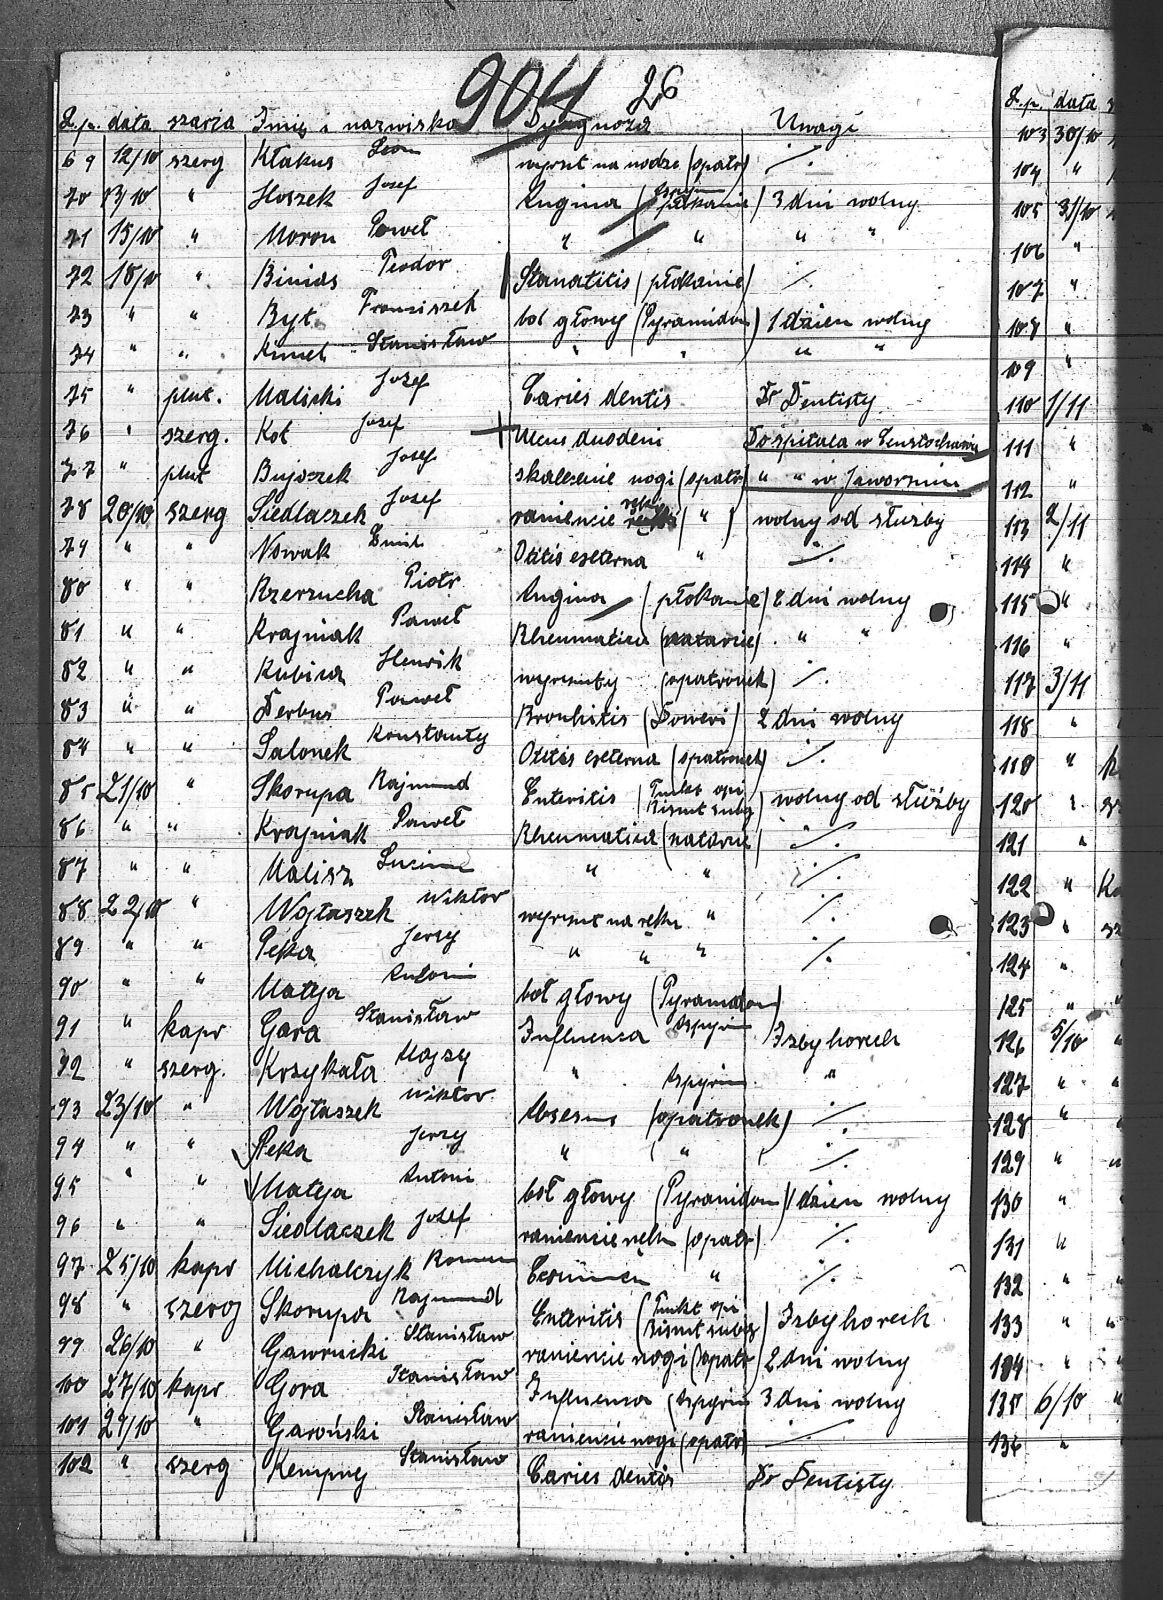 904 26
L.p. data szarja Imię i nazwisko Dyagnoza Uwagi
69 12/10 szerg Kłakus Leon wyrzut na nodze (opatr) ./.
70 13/10 " Hoszek Josef Angina (Aspiryn płokanie) 3 dni wolny
71 15/10 " Moron Paweł " " " "
72 18/10 " Binias Teodor Stomatitis (płokanie) ./.
73 " " Byt. Franciszek bol głowy (Pyramidon) 1 dzien wolny
74 " " Kimel Stanisław " " " "
75 " plut. Maliski Jozef Caries dentis Do Dentisty
76 " szerg. Kot Josef Ulcus duodeni Do szpitala w Censtochowie
77 " plut Bujoczek Josef skalecenie nogi (opatr) " " w Jaworzniu
78 20/10 szerg Siedlaczek Josef ranienie ręki ( " ) wolny od służby
79 " " Nowak Emil Otitis externa " ./.
80 " " Rzerzucha Piotr Angina (płokanie) 2 dni wolny
81 " " Krajniak Paweł Rheumatica (natarcie) " "
82 " " Kubica Henrik wyrzuty (opatronek) ./.
83 " " Derbus Paweł Bronhitis (Doweri) 2 dni wolny
84 " " Salonek Konstanty Otitis externa (opatronek) ./.
85 21/10 " Skorupa Rajmund Enteritis (Tinkt opi Bismt subg) wolny od służby
86 " " Krajniak Paweł Rheumatica (natarcie) ./.
87 " " Malisz " " ./.
88 22/10 " Wojtaszek Wiktor wyrzut na ręku " ./.
89 " " Pęka Jerzy " " " ./.
90 " " Matyja Antoni boł głowy (Pyramidon)
91 " kapr Gora Stanisław Influenca Aspyrin Izby horech
92 " szerg. Krzykała Alojzy " Aspyrin "
93 23/10 " Wojtaszek Wiktor Absesus (opatronek) ./.
94 " " Pęka Jerzy " ( " ./.
95 " " Matyja Antoni boł głowy (Pyramidon) 1 dzien wolny
96 " " Siedlaczek Josef ranienie ręku (opatr) ./.
97 25/10 kapr Michalczyk Roman " ./.
98 " szerg Skorupa Rajmund Enteritis (Tinkt opi Bismt subg) Izby horech
99 26/10 " Gawrucki Stanisław ranienie nogi (opatr) 2 dni wolny
100 27/10 kapr Gora Stanisław Influenca (Aspyrin 3 dni wolny
101 29/10 " Garoński Stanisław ranienie nogi (opatr) ./.
102 " szerg Kempny Stanisław Caries dentis Do Dentisty
L.p. data
103 30/10
104 "
105 31/10
106 "
107 "
108 "
109 "
110 1/11
111 "
112 "
113 2/11
114 "
115 "
116 "
117 3/11
118 "
119 "
120 "
121 "
122 "
123 "
124 "
125 "
126 5/10 "
127 " "
128 "
129 " "
130 "
131 "
132 " "
133 " "
134 " "
135 6/10 "
136 "